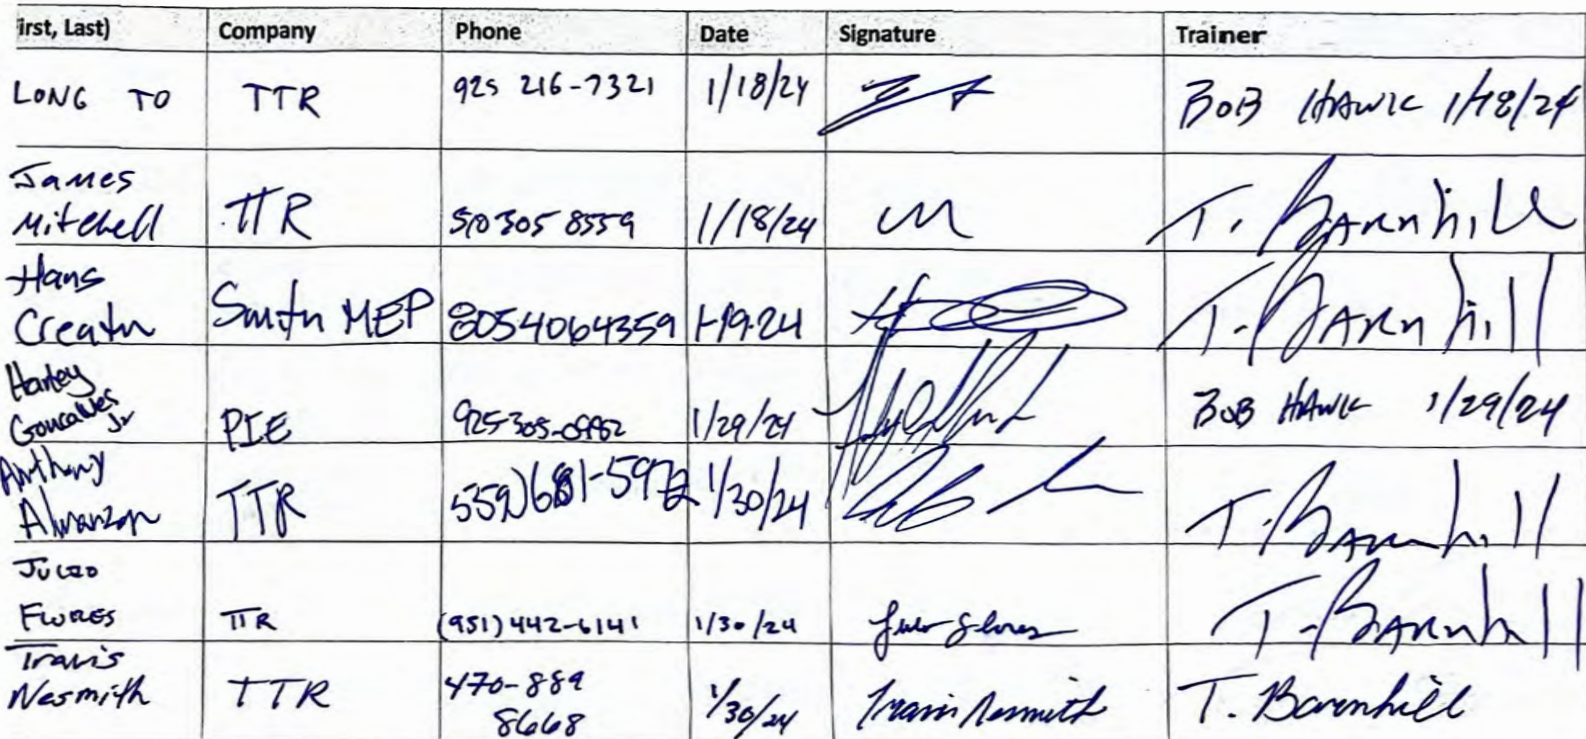 irst, Last) Company Phone Date Signature Trainer
LONG TO TTR 925 216-7321 1/18/24 BOB HAWK 1/18/24
James
Mitchell TTR 510 305 8559 1/18/24 T. BARnhill
Hans
Creatn Smith MEP 8054064359 1-19-24 T. BARnhill
Harley
Goncalves Jr PIE 925-305-0982 1/29/24 BOB HAWK 1/29/24
Anthony
Almanzan TTR 559)681-5972 1/30/24 T. BARnhill
Julio
FLORES TTR (951) 442-6141 1/30/24 Julio Flores T. BARnhill
Travis
Nesmith TTR 470-889 1/30/24 Travis Nesmith T. Barnhill
8668